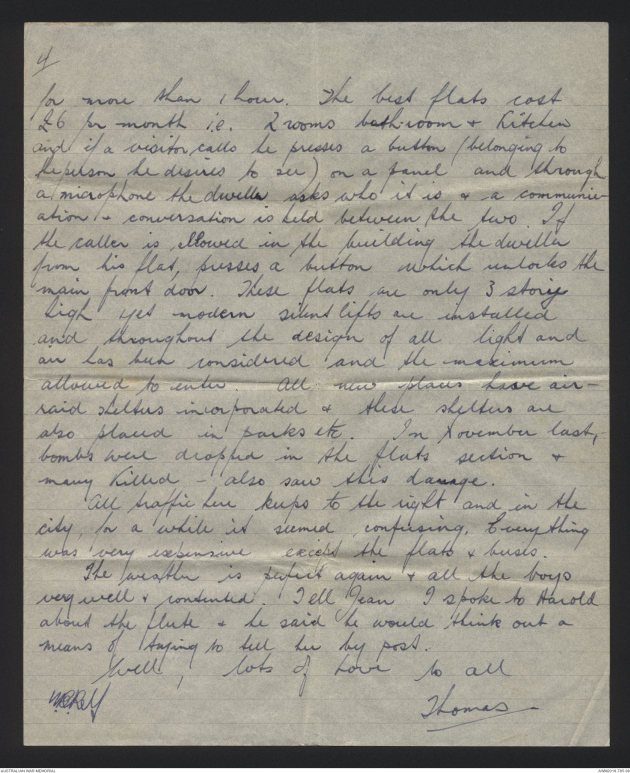 4/
for more than 1 hour. The best flats cost
£6 pr month i.e. 2 rooms bath-room & kitchen
and if a visitor calls he presses a button (belonging to
the person he desires to see) on a panel and through
a microphone the dweller asks who it is & a communic-
ation & conversation is held between the two. If
the caller is allowed in the building the dweller
from his flat, presses a button which unlocks the
main front door. These flats are only 3 storey
high yet modern silent lifts are installed
and throughout the design of all light and
air has been considered and the maximum
allowed to enter. All new places have air-
raid shelters incorporated & these shelters are
also placed in parks etc. In November last,
bombs were dropped in the flats section &
many killed - also saw this damage.
All traffic here keeps to the right and in the
city, for a while it seemed confusing. Everything
was very expensive except the flats & buses.
The weather is perfect again & all the boys
very well & contented. Tell Jean I spoke to Harold
about the flute & he said he would think out a
means of trying to tell her by post.
Well, lots of love to all
Thomas
AUSTRALIAN WAR MEMORIAL